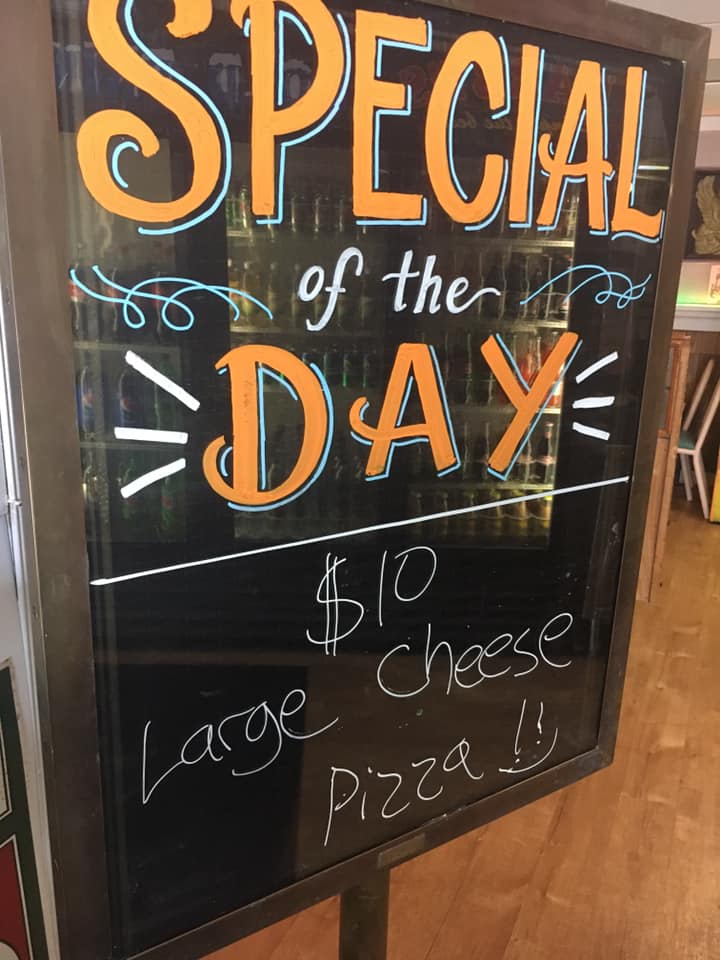 SPECIAL
of the
DAY
$10
Large cheese
Pizza !!